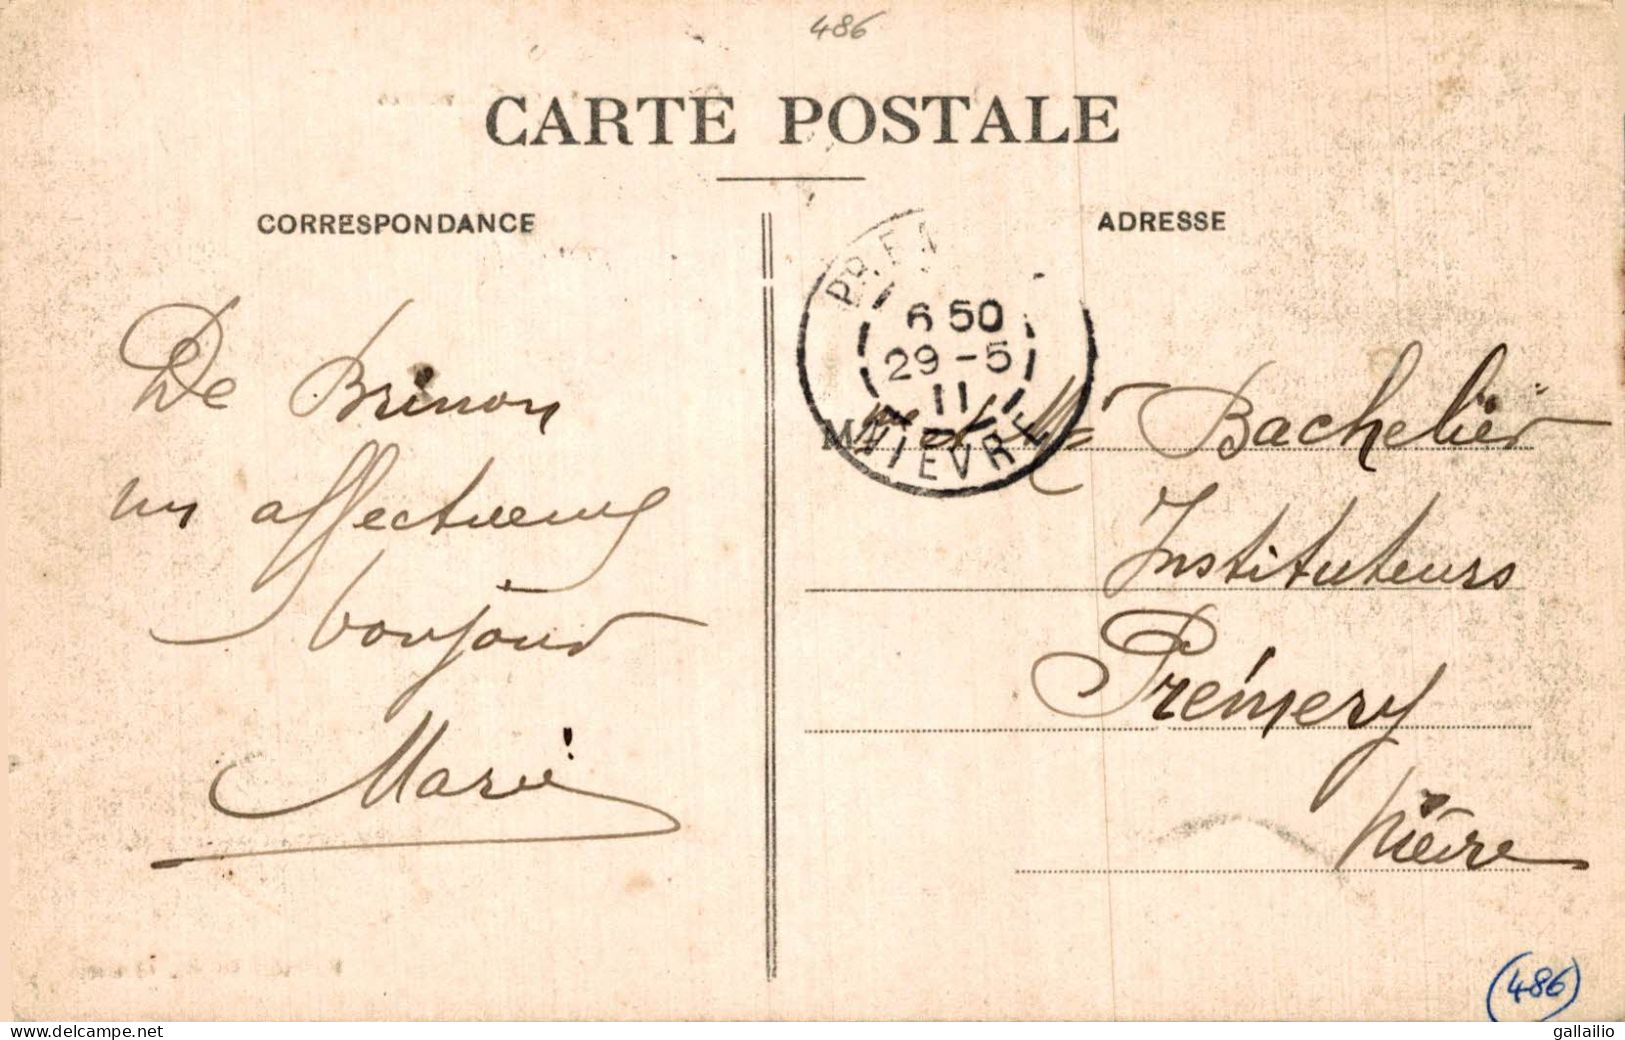 486
CARTE POSTALE
CORRESPONDANCE
De Brinon
un affectueux
bonjour
Marie
ADRESSE
PREM
6 50
29 - 5
11
NIEVRE
Mme et Mr Bachelier
Instituteurs
Prémery
Nièvre
(486)
www.delcampe.net
gallailio